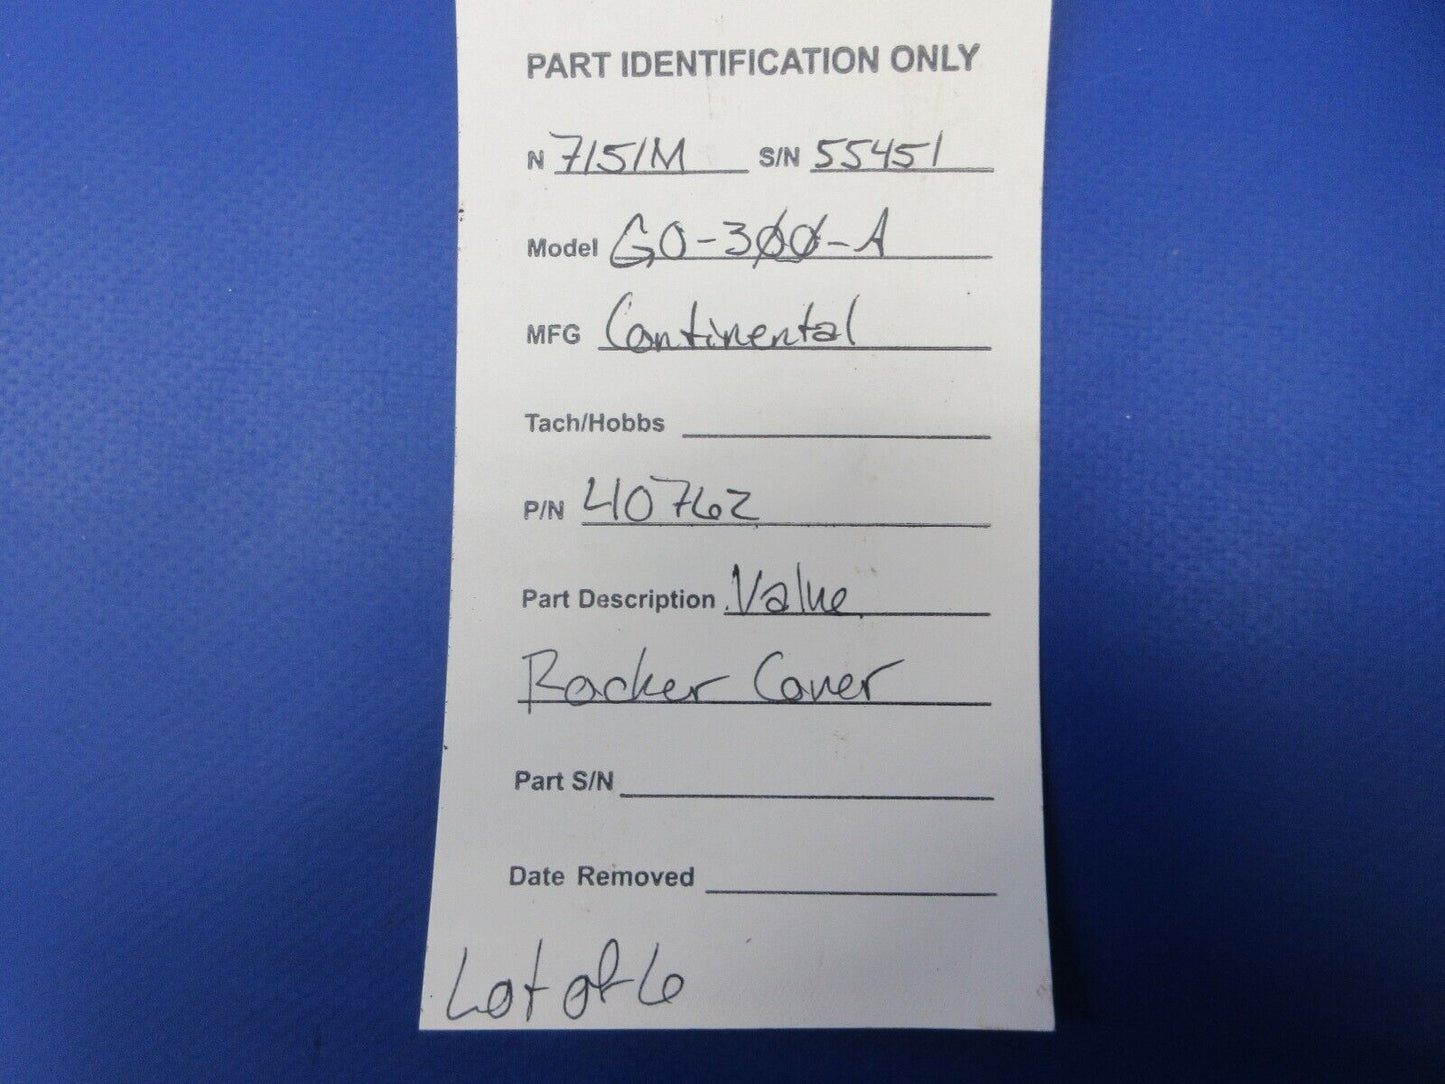 PART IDENTIFICATION ONLY
N 7151M S/N 55451
Model GO-300-A
MFG Continental
Tach/Hobbs
P/N 40762
Part Description Valve
Rocker Cover
Part S/N
Date Removed
Lot of 6